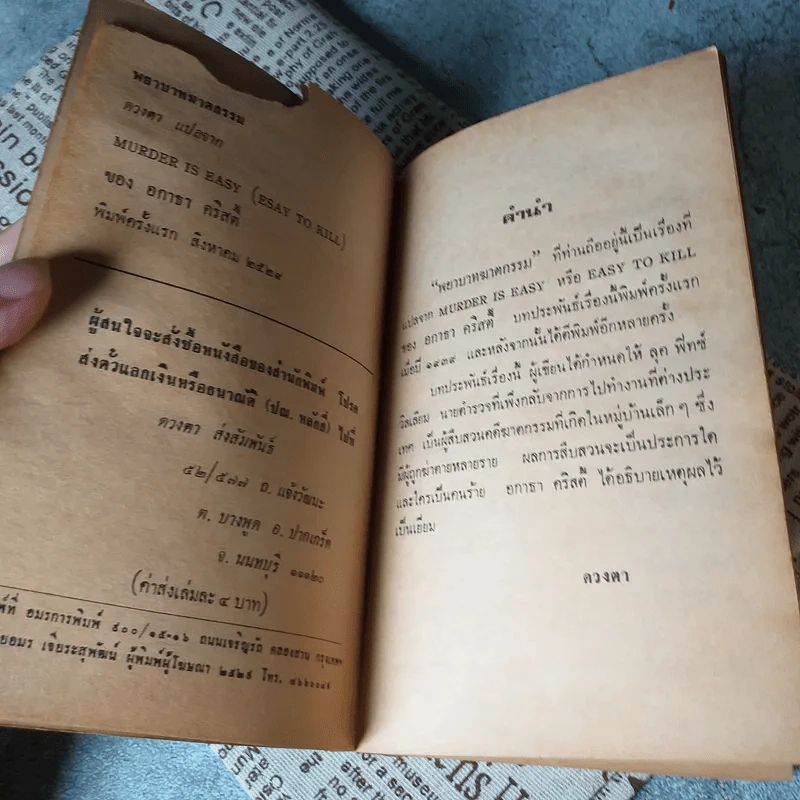 พยาบาทฆาตกรรม
ดวงตา แปลจาก
MURDER IS EASY (ESAY TO KILL)
ของ อกาธา คริสตี้
พิมพ์ครั้งแรก สิงหาคม ๒๕๒๙
ผู้สนใจจะสั่งซื้อหนังสือของสำนักพิมพ์ โปรด
ส่งตั๋วแลกเงินหรือธนาณัติ (ปณ. หลักสี่) ไปที่
ดวงตา ส่งสัมพันธ์
๕๒/๕๗๗ ถ. แจ้งวัฒนะ
ต. บางพูด อ. ปากเกร็ด
จ. นนทบุรี ๑๑๑๒๐
(ค่าส่งเล่มละ ๔ บาท)
อมรการพิมพ์ ๕๐๐/๑๕-๑๖ ถนนเจริญรัถ คลองสาน กรุงเทพฯ
เจียระสุพัฒน์ ผู้พิมพ์ผู้โฆษณา ๒๕๒๙ โทร.
คำนำ
"พยาบาทฆาตกรรม" ที่ท่านถืออยู่นี้เป็นเรื่องที่
แปลจาก MURDER IS EASY หรือ EASY TO KILL
ของ อกาธา คริสตี้ บทประพันธ์เรื่องนี้พิมพ์ครั้งแรก
เมื่อปี ๑๙๓๙ และหลังจากนั้นได้ตีพิมพ์อีกหลายครั้ง
บทประพันธ์เรื่องนี้ ผู้เขียนได้กำหนดให้ ลุค ฟิทซ์
วิลเลียม นายตำรวจที่เพิ่งกลับจากการไปทำงานที่ต่างประ
เทศ เป็นผู้สืบสวนคดีฆาตกรรมที่เกิดในหมู่บ้านเล็กๆ ซึ่ง
มีผู้ถูกฆ่าตายหลายราย ผลการสืบสวนจะเป็นประการใด
และใครเป็นคนร้าย อกาธา คริสตี้ ได้อธิบายเหตุผลไว้
เป็นเยี่ยม
ดวงตา